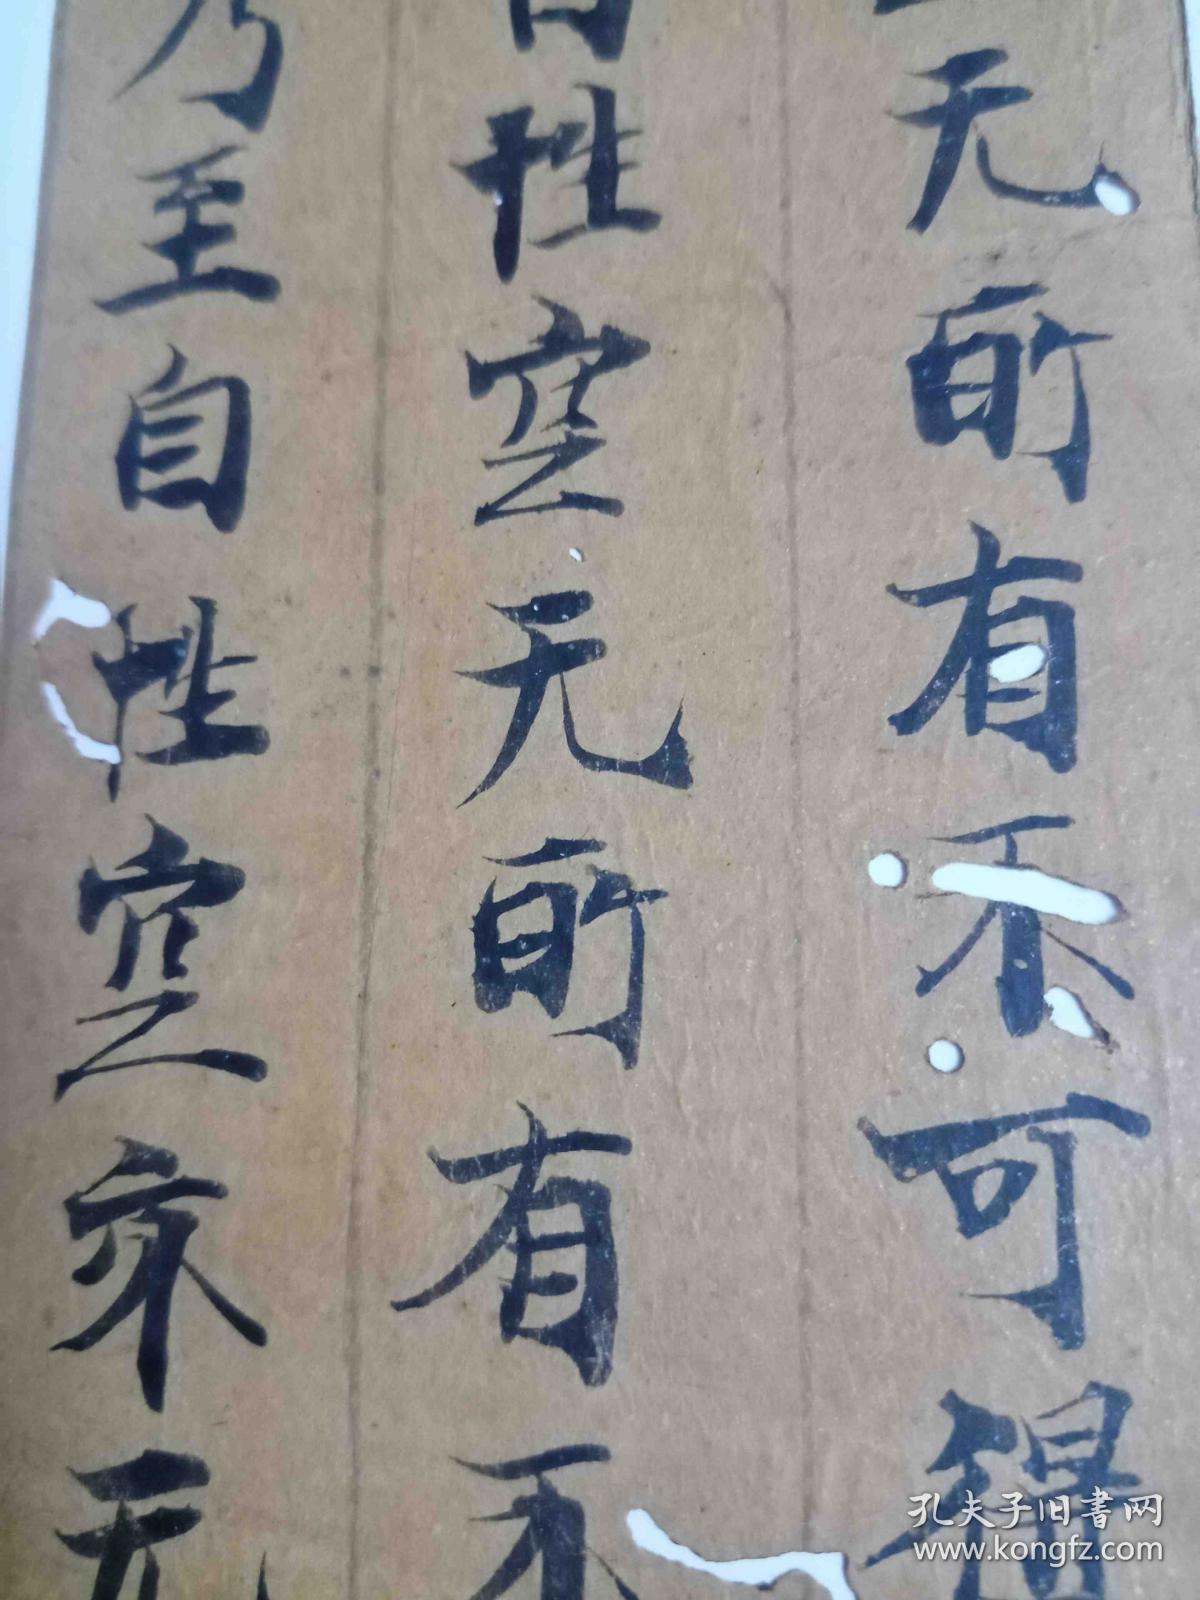 无所有不可得
自性空无所有不
乃至自性空亦无
孔夫子旧书网
www.kongfz.com